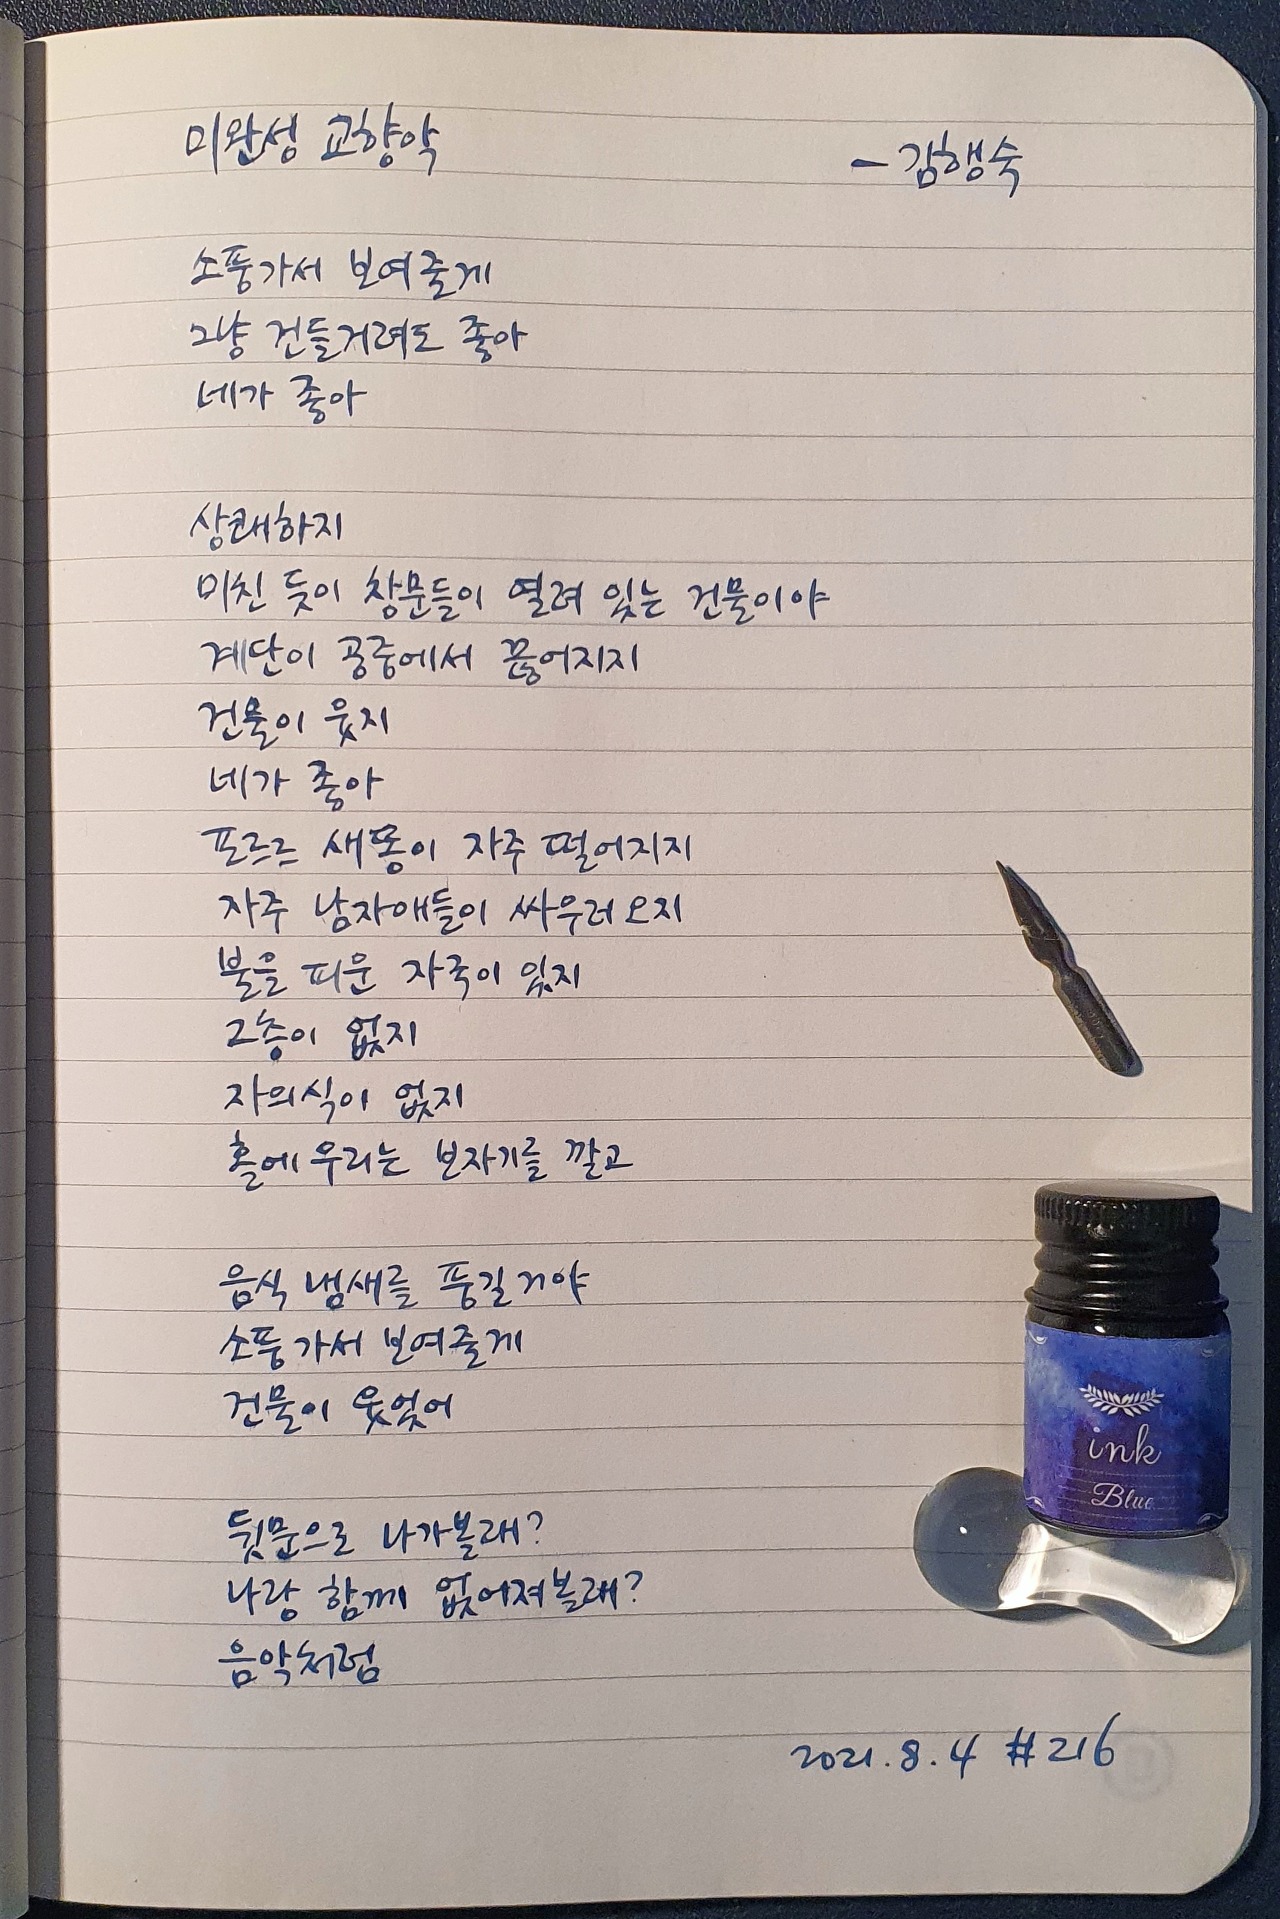 미완성 교향악
- 김행숙
소풍가서 보여줄게
그냥 건들거려도 좋아
네가 좋아
상쾌하지
미친 듯이 창문들이 열려 있는 건물이야
계단이 공중에서 끊어지지
건물이 웃지
네가 좋아
포르르 새똥이 자주 떨어지지
자주 남자애들이 싸우러 오지
불을 피운 자국이 있지
2층이 없지
자의식이 없지
홀에 우리는 보자기를 깔고
음식 냄새를 풍길거야
소풍 가서 보여줄게
건물이 웃었어
뒷문으로 나가볼래?
나랑 함께 없어져볼래?
음악처럼
2021.8.4 #216
ink
Blue